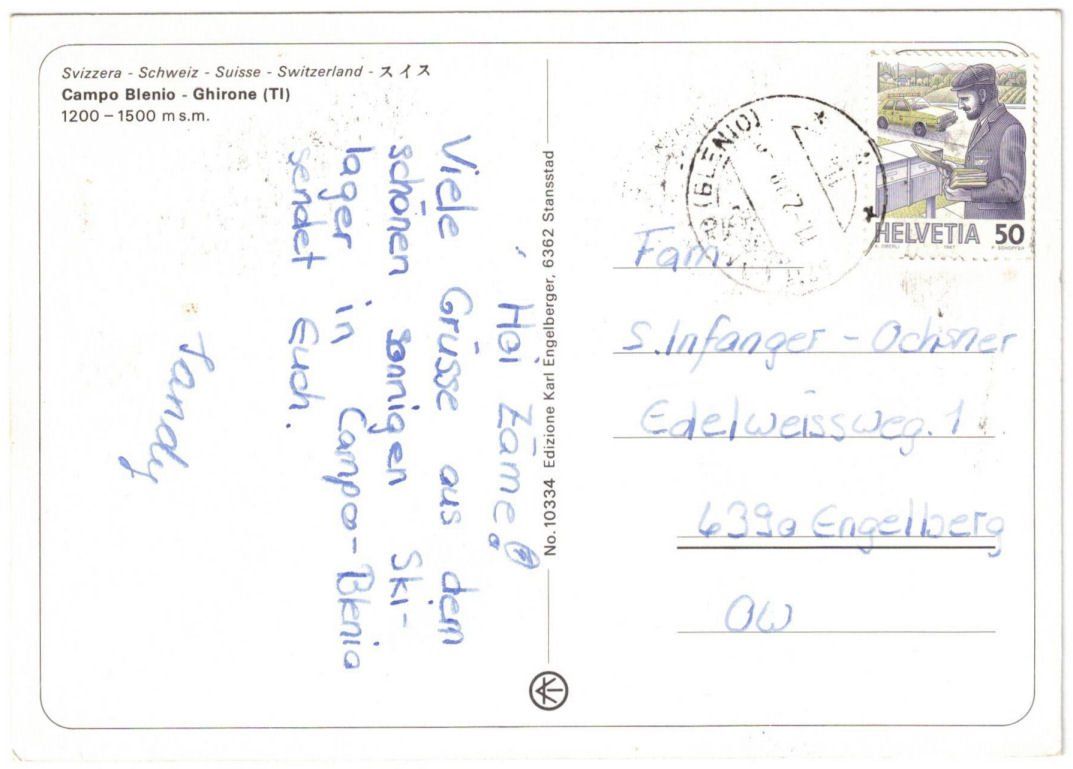 Svizzera - Schweiz - Suisse - Switzerland - スイス
Campo Blenio - Ghirone (TI)
1200 – 1500 m s.m.
Hoi Zäme!
Viele Grüsse aus dem
schönen sonnigen Ski-
lager in Campo-Blenio
sendet Euch.
Sandy
No. 10334 Edizione Karl Engelberger, 6362 Stansstad
(BLENIO)
HELVETIA 50
Fam.
S. Infanger - Ochsner
Edelweissweg. 1
6390 Engelberg
OW